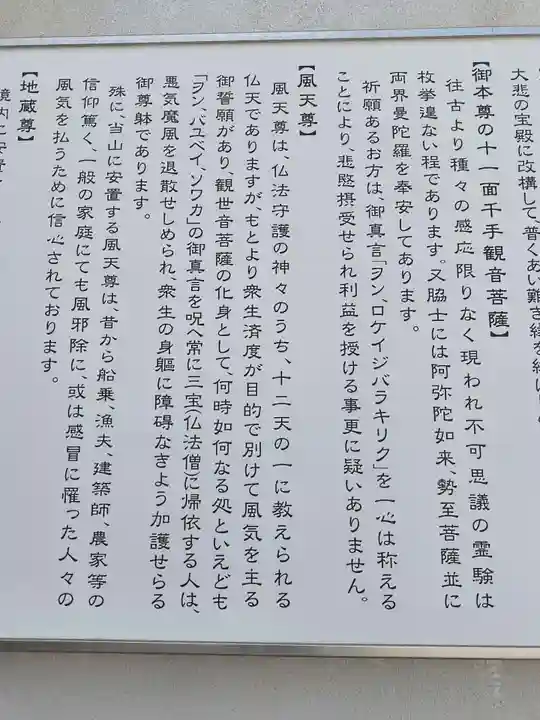 大悲の宝殿に改構して、普くあい難き縁を結い
【御本尊の十一面千手観音菩薩】
往古より種々の感応限りなく現われ不可思議の霊験は
枚挙遑ない程であります。又脇士には阿弥陀如来、勢至菩薩並に
両界曼陀羅を奉安してあります。
祈願あるお方は、御真言「ヲン、ロケイジバラキリク」を一心は称える
ことにより、悲愍摂受せられ利益を授ける事更に疑いありません。
【風天尊】
風天尊は、仏法守護の神々のうち、十二天の一に教えられる
仏天でありますが、もとより衆生済度が目的で別けて風気を主る
御誓願があり、観世音菩薩の化身として、何時如何なる処といえども
「ヲン、バユベイ、ソワカ」の御真言を呪へ常に三宝(仏法僧)に帰依する人は、
悪気魔風を退散せしめられ、衆生の身軀に障碍なきよう加護せらる
御尊躰であります。
殊に、当山に安置する風天尊は、昔から船乗、漁夫、建築師、農家等の
信仰篤く、一般の家庭にても風邪除に、或は感冒に罹った人々の
風気を払うために信心されております。
【地蔵尊】
境内に安置